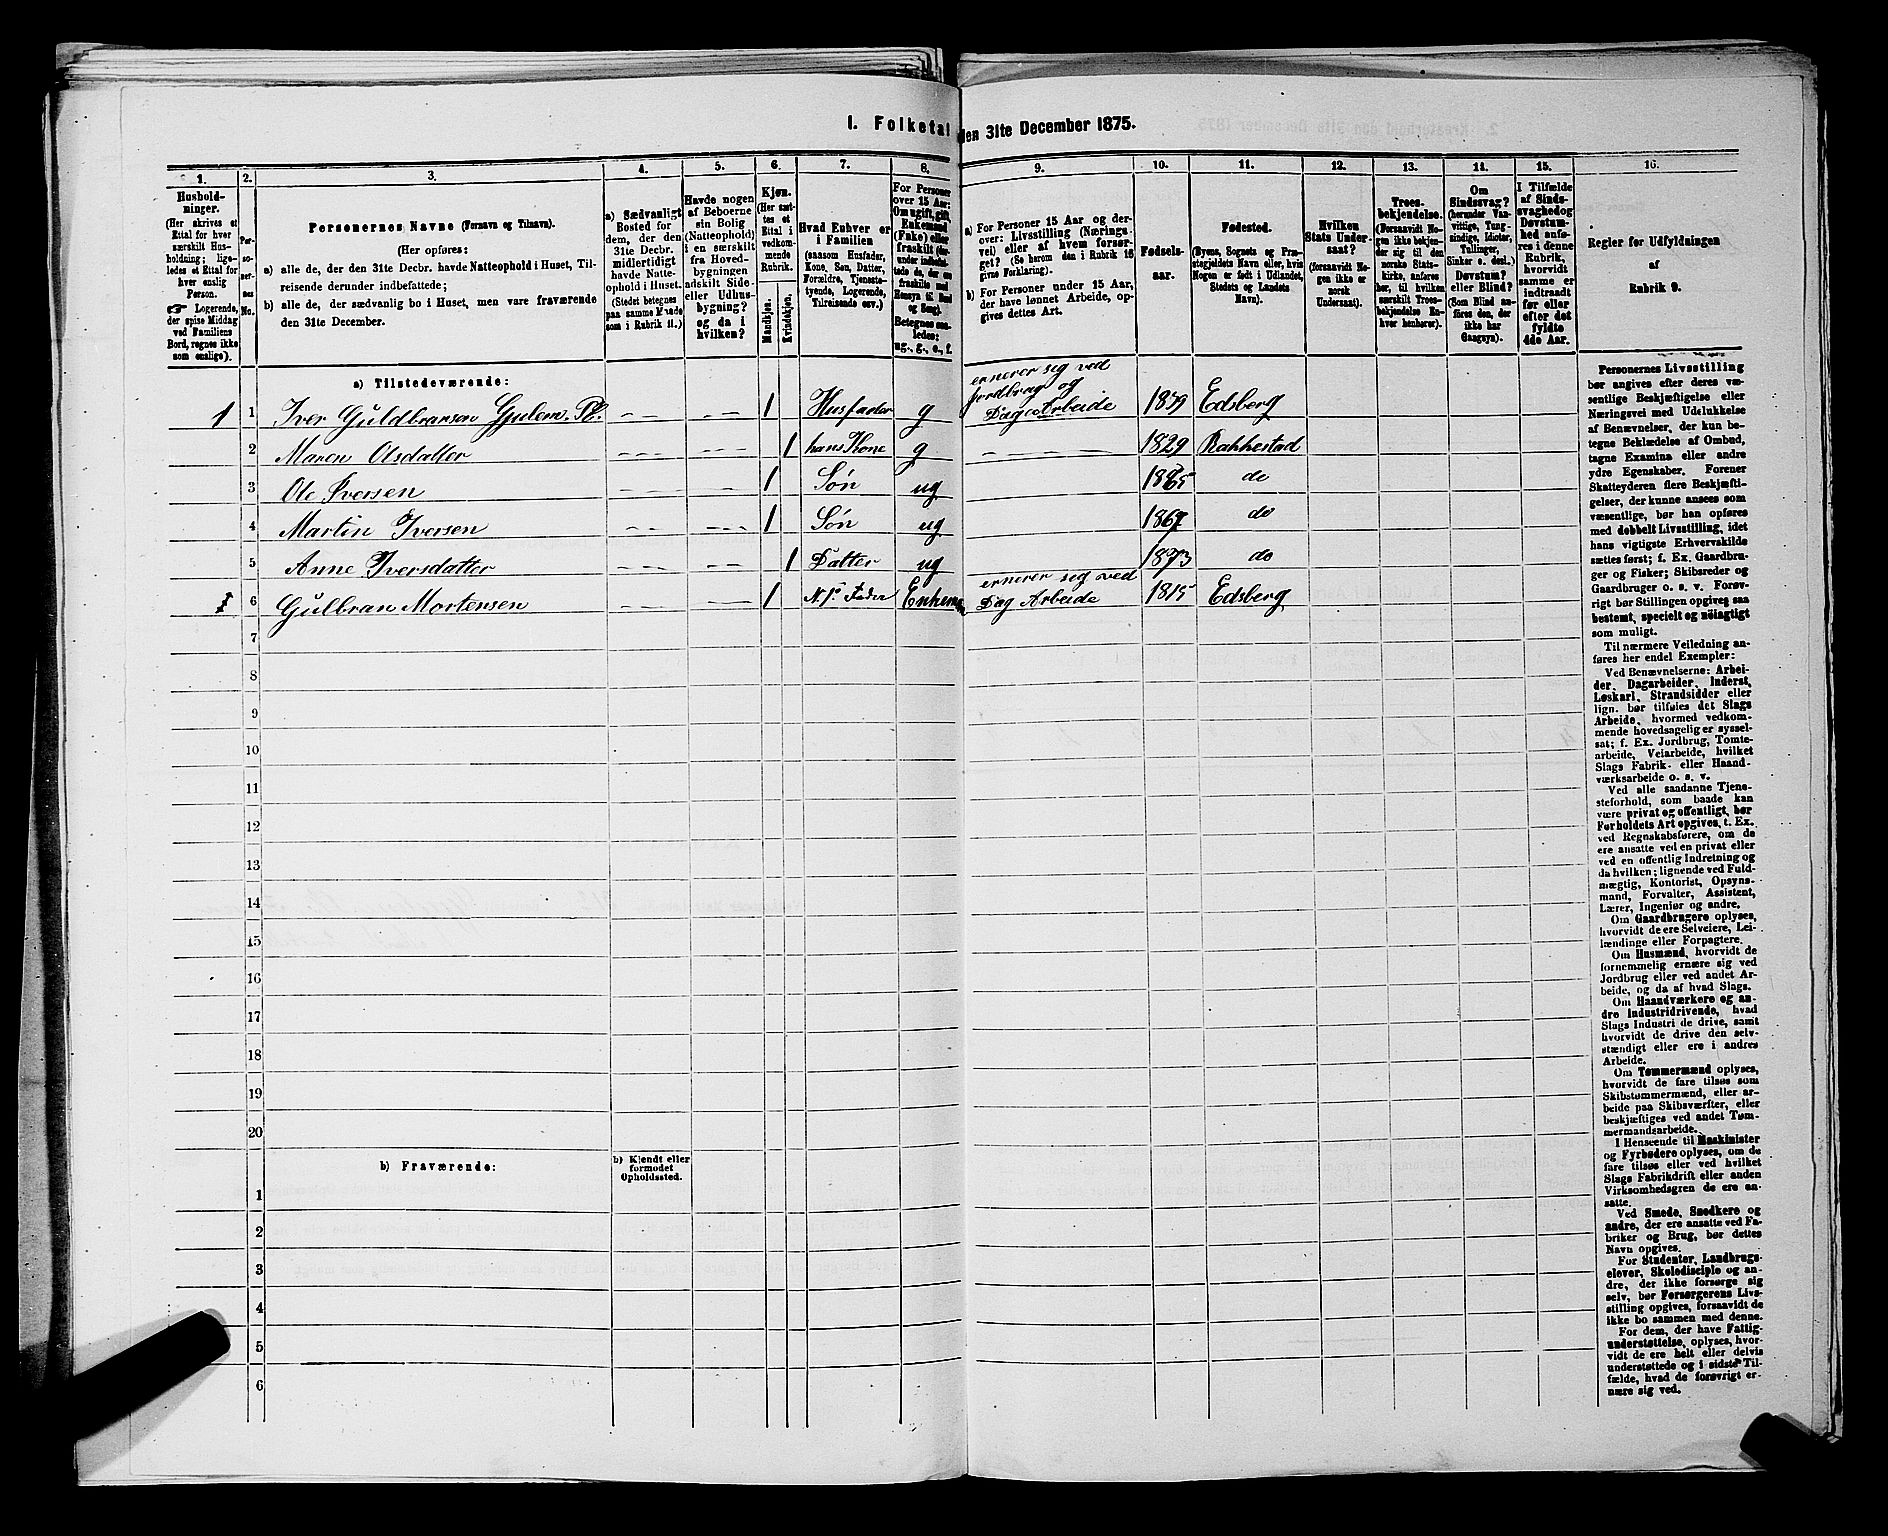 1. Folketal den 31te December 1875.
1. 2. 3. 4. 5. 6. 7. 8. 9. 10. 11. 12. 13. 14. 15. 16.
Hushold-
ninger.
(Her skrives et
Ettal for hver
særskilt Hus-
holdning; lige-
ledes et Ettal for
hver enslig
Person.
☞ Logerende,
der spise Middag
ved Familiens
Bord, regnes ikke
som enslige).
Per-
so-
ner-
nes
No.
Personernes Navne (Fornavn og Tilnavn).
(Her opføres:
a) alle de, der den 31te Decbr. havde Natteophold i Huset, Til-
reisende derunder indbefattede;
b) alle de, der sædvanlig bo i Huset, men vare fraværende
den 31te December.
a) Sædvanligt
Bosted for
dem, der den
31te Decbr.
midlertidigt
havde Natte-
ophold i Huset.
(Stedet betegnes
paa samme Maade
som i Rubrik 11.)
Havde nogen
af Beboerne
sin Bolig
(Natteophold)
i en særskilt
fra Hoved-
bygningen
adskilt Side-
eller Udhus-
bygning?
og da i
hvilken?
Kjøn.
(Her sæt-
tes et
Ettal i
vedkom-
mende
Rubrik.
Mandkjøn.
Kvindekjøn.
Hvad Enhver er
i Familien
(saasom Husfader,
Kone, Søn, Datter,
Forældre, Tjeneste-
tyende, Logerende,
Tilreisende osv.)
For Personer
over 15 Aar:
Om ugift, gift,
Enkemand
(Enke) eller
fraskilt
Betegnes saa-
ledes:
ug., g., e., f.
a) For Personer 15 Aar og der-
over: Livsstilling (Nærings-
vei) eller af hvem forsør-
get? (Se herom den i Rubrik 16
givne Forklaring).
b) For Personer under 15 Aar,
der have lønnet Arbeide, op-
gives dettes Art.
Fødsels-
aar.
Fødested.
(Byens, Sognets og Præ-
stegjeldets Navn eller, hvis
Nogen er født i Udlandet,
Stedets og Landets
Navn).
Hvilken
Stats Under-
saat?
(forsaavidt No-
gen ikke er
norsk
Undersaat).
Troes-
bekjendelse.
(Forsaavidt No-
gen ikke bekjen-
der sig til den
norske Stats-
kirke, anføres
her, til hvilken
særskilt Troes-
bekjendelse En-
hver henhører).
Om
Sindssvag?
(herunder Van-
vittige, Tung-
sindige, Idioter,
Tullinger,
Sinker o. desl.)
Døvstum?
eller Blind?
(Som Blind an-
føres den, der
ikke har
Gangsyn).
I Tilfælde
af Sinds-
svaghed og
Døvstum-
hed anfø-
res i denne
Rubrik,
hvorvidt
samme er
indtraadt
før eller
efter det
fyldte
4de Aar.
Regler for Udfyldningen
af
Rubrik 9.
a) Tilstedeværende:
ernerer sig ved
jordbrug og
1 1 Iver Guldbransen Gjulem. Pl. 1 Husfader g Dag Arbeide 1839 Edsberg
2 Maren Olsdatter 1 hans Kone g 1829 Rakkestad
3 Ole Iversen 1 Søn ug 1865 do
4 Martin Iversen 1 Søn ug 1867 do
5 Anne Iversdatter 1 Datter ug 1873 do
ernerer sig ved
1 6 Gulbran Mortensen 1 Fader Enkem Dag Arbeide 1815 Edsberg
7
8
9
10
11
12
13
14
15
16
17
18
19
20
b) Fraværende:
b) Kjendt eller
formodet
Opholdssted.
1
2
3
4
5
6
Personernes Livsstilling
bør angives efter deres væ-
sentlige Beskjæftigelse eller
Næringsvei med Udelukkelse
af Benævnelser, der kun be-
tegne Beklædelse af Ombud,
tagne Examina eller andre
ydre Egenskaber. Forener
Skatteyderen flere Beskjæfti-
gelser, der kunne ansees som
væsentlige, bør han opføres
med dobbelt Livsstilling, idet
hans vigtigste Erhvervskilde
sættes først; f. Ex. Gaardbru-
ger og Fisker; Skibsreder og
Gaardbruger o. s. v. Forøv-
rigt bør Stillingen opgives saa
bestemt, specielt og nöiagtigt
som muligt.
Til nærmere Veiledning an-
føres her endel Exempler:
Ved Benævnelserne: Arbei-
der, Dagarbeider, Inderst,
Løskarl, Strandsidder eller
lign. bør tilføies det Slags
Arbeide, hvormed vedkom-
mende hovedsagelig er syssel-
sat; f. Ex. Jordbrug, Tomte-
arbeide, Veiarbeide, hvilket
Slags Fabrik- eller Haand-
værksarbeide o. s. v.
Ved alle saadanne Tjene-
steforhold, som baade kan
være privat og offentligt, bør
Forholdets Art opgives, t. Ex.
ved Regnskabsførere, om de
ere ansatte ved en privat eller
ved en offentlig Indretning og
da hvilken; lignende ved Fuld-
mægtig, Kontorist, Opsyns-
mand, Forvalter, Assistent,
Lærer, Ingeniør og andre.
Om Gaardbrugere oplyses,
hvorvidt de ere Selveiere, Lei-
lændinge eller Forpagtere.
Om Husmænd, hvorvidt de
fornemmelig ernære sig ved
Jordbrug eller ved andet Ar-
beide, og da af hvad Slags.
Om Haandværkere og an-
dre Industridrivende, hvad
Slags Industri de drive, samt
hvorvidt de drive den selv-
stændigt eller ere i andres
Arbeide.
Om Tømmermænd oplyses,
hvorvidt de fare tilsøs som
Skibstømmermænd, eller ar-
beide paa Skibsværfter, eller
beskjæftiges ved andet Tøm-
mermandsarbeide.
I Henseende til Maskinister
og Fyrbødere oplyses, om de
fare tilsøs eller ved hvilket
Slags Fabrikdrift eller anden
Virksomhedsgren de ere an-
satte.
Ved Smede, Snedkere og
andre, der ere ansatte ved Fa-
briker og Brug, bør dettes
Navn opgives.
For Studenter, Landbrugs-
elever, Skoledisciple og an-
dre, der ikke forsørge sig
selv, bør Forsørgerens Livs-
stilling opgives, forsaavidt de
ikke bo sammen med denne.
For dem, der have Fattig-
understøttelse, oplyses, hvor-
vidt de ere helt eller delvis
understøttede og i sidste Til-
fælde, hvad de forøvrigt er-
nære sig ved.